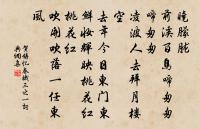 曉朦朧
前溪百鳥啼匆匆
啼匆匆
凌波人去拜月樓
空
去年今日東門東
鮮妝輝映桃花紅
桃花紅
吹開吹落一任東
風
賀鑄憶秦娥三之一詞